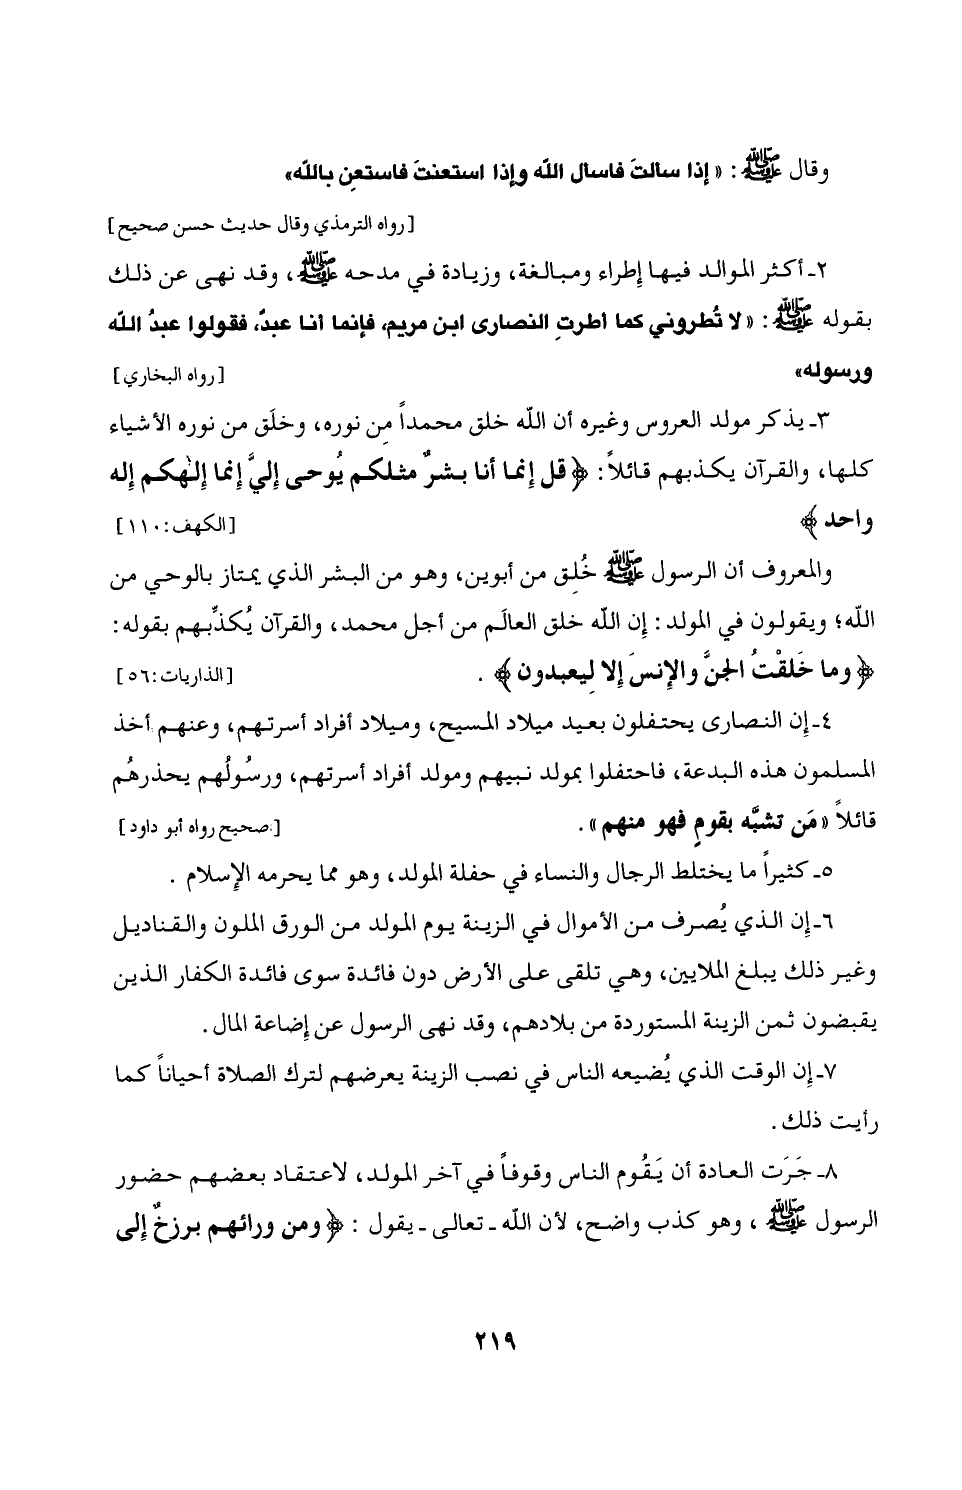 وقال ﷺ : « إذا سالتَ فاسال الله وإذا استعنتَ فاستعنِ بالله»
[رواه الترمذي وقال حديث حسن صحيح]
٢ـ أكثر الموالد فيها إطراء ومبالغة، وزيادة في مدحه ﷺ، وقد نهى عن ذلك
بقوله ﷺ : « لا تُطروني كما أطرتِ النصارى ابن مريم، فإنما أنا عبدٌ، فقولوا عبدُ الله
ورسوله» [رواه البخاري]
٣ـ يذكر مولد العروس وغيره أن الله خلق محمداً مِن نوره، وخلَق من نوره الأشياء
كلها، والقرآن يكذبهم قائلاً : ﴿ قل إنما أنا بشرٌ مثلكم يُوحى إليَّ إنما إلٰهكم إله
واحد ﴾ [الكهف: ١١٠]
والمعروف أن الرسول ﷺ خُلِق من أبوين، وهو من البشر الذي يمتاز بالوحي من
الله؛ ويقولون في المولد : إن الله خلق العالَم من أجل محمد، والقرآن يُكذِّبهم بقوله:
﴿ وما خَلقْتُ الجنَّ والإنسَ إلا لِيعبدون ﴾ . [الذاريات: ٥٦]
٤ـ إن النصارى يحتفلون بعيد ميلاد المسيح، وميلاد أفراد أسرتهم، وعنهم أخذ
المسلمون هذه البدعة، فاحتفلوا بمولد نبيهم ومولد أفراد أسرتهم، ورسُولُهم يحذرهُم
قائلاً «مَن تشبَّه بقومٍ فهو منهم» . [صحيح رواه أبو داود]
٥ـ كثيراً ما يختلط الرجال والنساء في حفلة المولد، وهو مما يحرمه الإسلام .
٦ـ إن الذي يُصرف من الأموال في الزينة يوم المولد من الورق الملون والقناديل
وغير ذلك يبلغ الملايين، وهي تلقى على الأرض دون فائدة سوى فائدة الكفار الذين
يقبضون ثمن الزينة المستوردة من بلادهم، وقد نهى الرسول عن إضاعة المال .
٧ـ إن الوقت الذي يُضيعه الناس في نصب الزينة يعرضهم لترك الصلاة أحياناً كما
رأيت ذلك .
٨ـ جَرَت العادة أن يَقُوم الناس وقوفاً في آخر المولد، لاعتقاد بعضهم حضور
الرسول ﷺ ، وهو كذب واضح، لأن الله ـ تعالى ـ يقول : ﴿ ومن ورائهم برزخٌ إلى
٢١٩